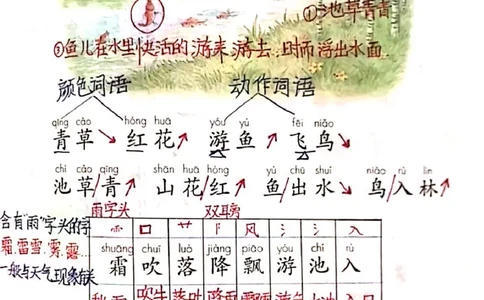 ①池草青青
③鱼儿在水里快活的游来游去,时而浮出水面…
颜色词语 动作词语
qīng cǎo hóng huā yóu yú fēi niǎo
青草↘ 红花↗ 游鱼↗ 飞鸟↘
chí cǎo qīng shān huā hóng yú chū shuǐ niǎo rù lín
池草/青↗ 山花/红↗ 鱼/出水↘ 鸟/入林↗
雨字头 双耳旁
含有"雨"字头的字
霜,雷雪,雾,露…
一般与天气现象有关
⻗ 口 艹 阝 风 氵 氵 入
shuāng chuī luò jiàng piāo yóu chí rù
霜 吹 落 降 飘 游 池 入
吹牛 落叶 入口